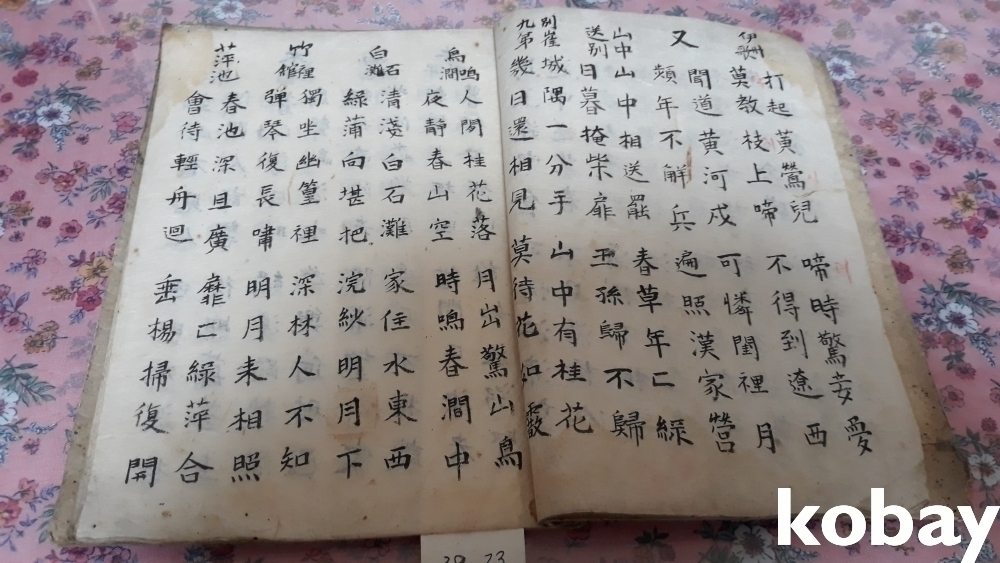 伊州歌
打起黃鶯兒 啼時驚妾愛
莫教枝上啼 不得到遼西
又
聞道黃河戍 可憐閨裡月
頻年不解兵 遍照漢家營
山中送別
山中相送罷 春草年〻綠
日暮掩柴扉 王孫歸不歸
別崔九第
城隅一分手 山中有桂花
幾日還相見 莫待花如霰
鳥鳴澗
人閑桂花落 月出驚山鳥
夜靜春山空 時鳴春澗中
白石灘
清淺白石灘 家住水東西
綠蒲向堪把 浣紗明月下
竹裡館
獨坐幽篁裡 深林人不知
彈琴復長嘯 明月来相照
萍池
春池深且廣 靡〻綠萍合
會待輕舟迴 垂楊掃復開
kobay